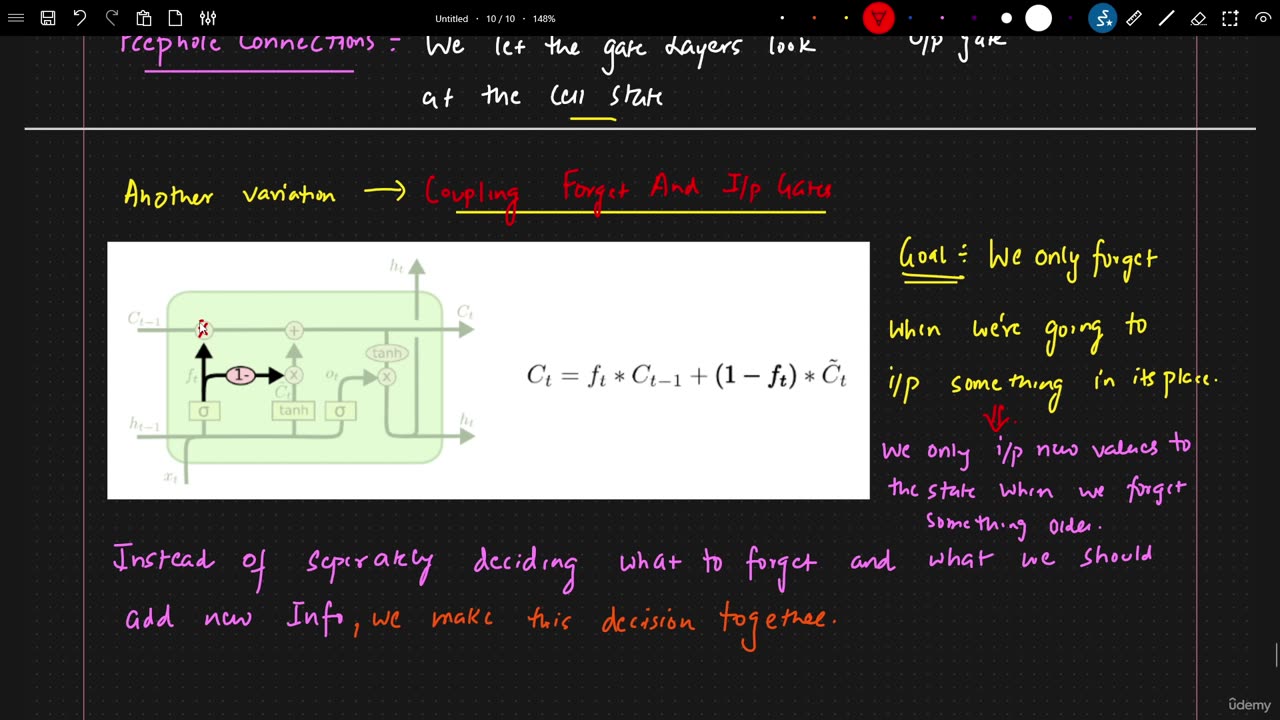 Untitled • 10 / 10 • 148%
Peephole Connections : We let the gate Layers look
O/p gate
at the Cell State
Another variation → Coupling Forget And I/p Gates
Goal : We only forget
when we're going to
i/p something in its place.
We only i/p new values to
the state when we forget
something older.
h_t
C_{t-1}
C_t
x
+
tanh
f_t
1-
x
C̃_t
o_t
x
σ
tanh
σ
h_{t-1}
h_t
x_t
C_t = f_t * C_{t-1} + (1 − f_t) * C̃_t
Instead of seperately deciding what to forget and what we should
add new Info, we make this decision together.
ûdemy